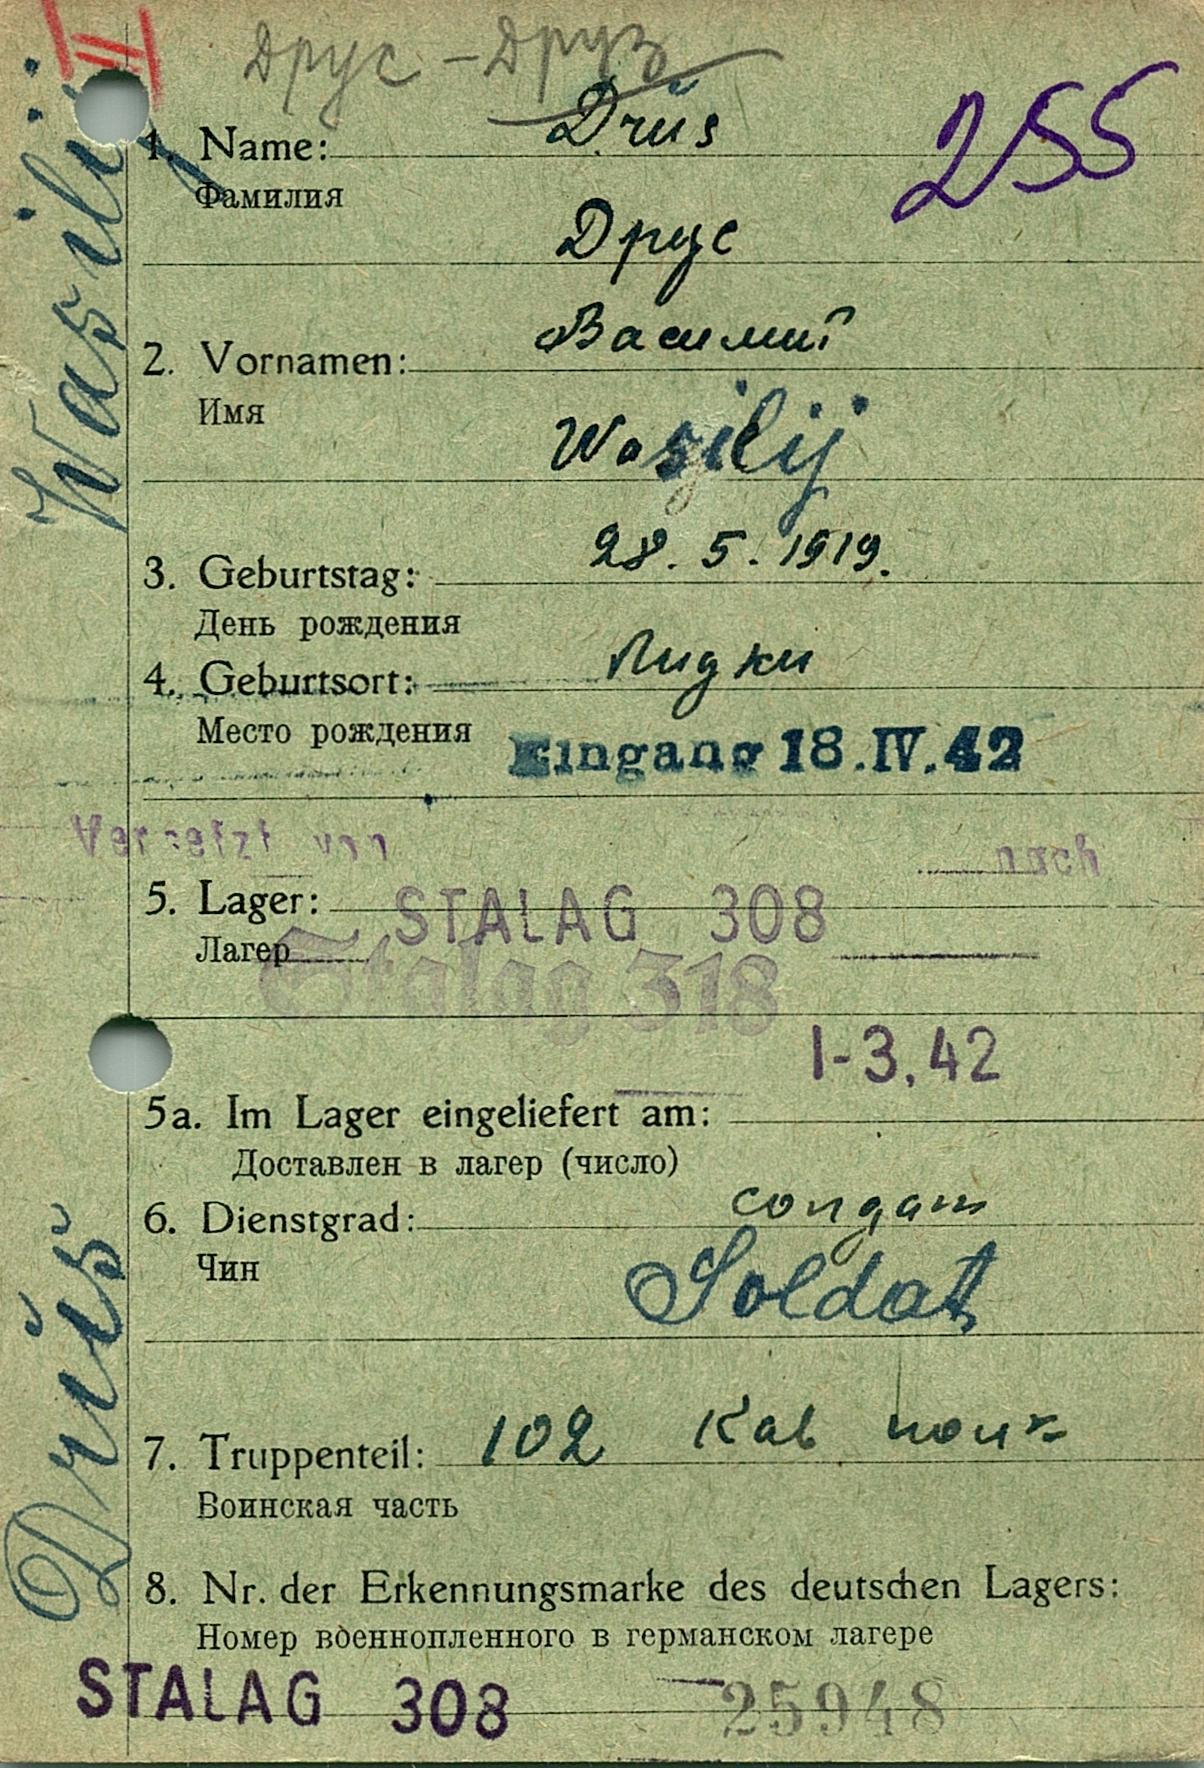 II
Друс - Друз
255
1. Name: Drus
Фамилия
Друс
2. Vornamen: Василий
Имя
Wasilij
3. Geburtstag: 28. 5. 1919.
День рождения
4. Geburtsort: Лидки
Место рождения
Eingang 18.IV.42
Versetzt von nach
5. Lager: STALAG 308
Лагер
Stalag 318
1-3.42
5a. Im Lager eingeliefert am:
Доставлен в лагер (число)
6. Dienstgrad: солдат
Чин
Soldat
7. Truppenteil: 102 Кав полк
Воинская часть
8. Nr. der Erkennungsmarke des deutschen Lagers:
Номер военнопленного в германском лагере
STALAG 308 25948
Drus Wasilij